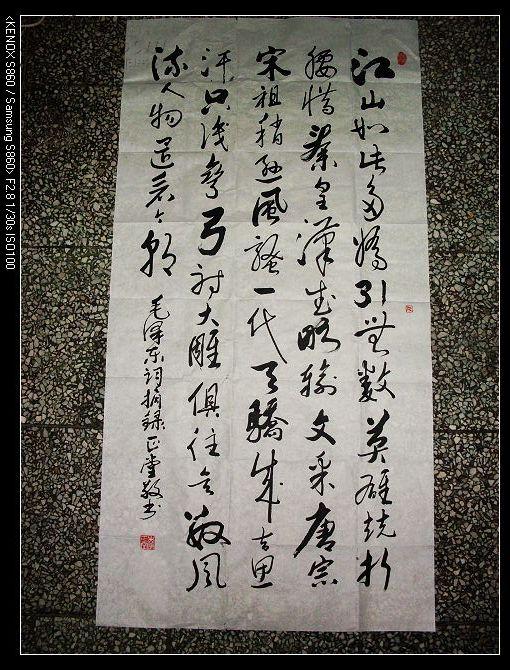 江山如此多娇引無数英雄竞折
腰惜秦皇漢武略输文采唐宗
宋祖稍逊風骚一代天驕成吉思
汗只识弯弓射大雕俱往矣数风
流人物還看今朝
毛泽东词摘録 正堂敬书
<KENOX S860 / Samsung S860> F2.8 1/30s ISO100